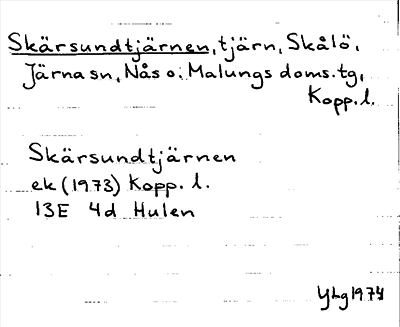 Skärsundtjärnen, tjärn, Skålö,
Järnasn, Nås o. Malungs doms.tg,
Kopp.l.
Skärsundtjärnen
ek (1973) Kopp. l.
13E 4d Hulen
YLg 1974